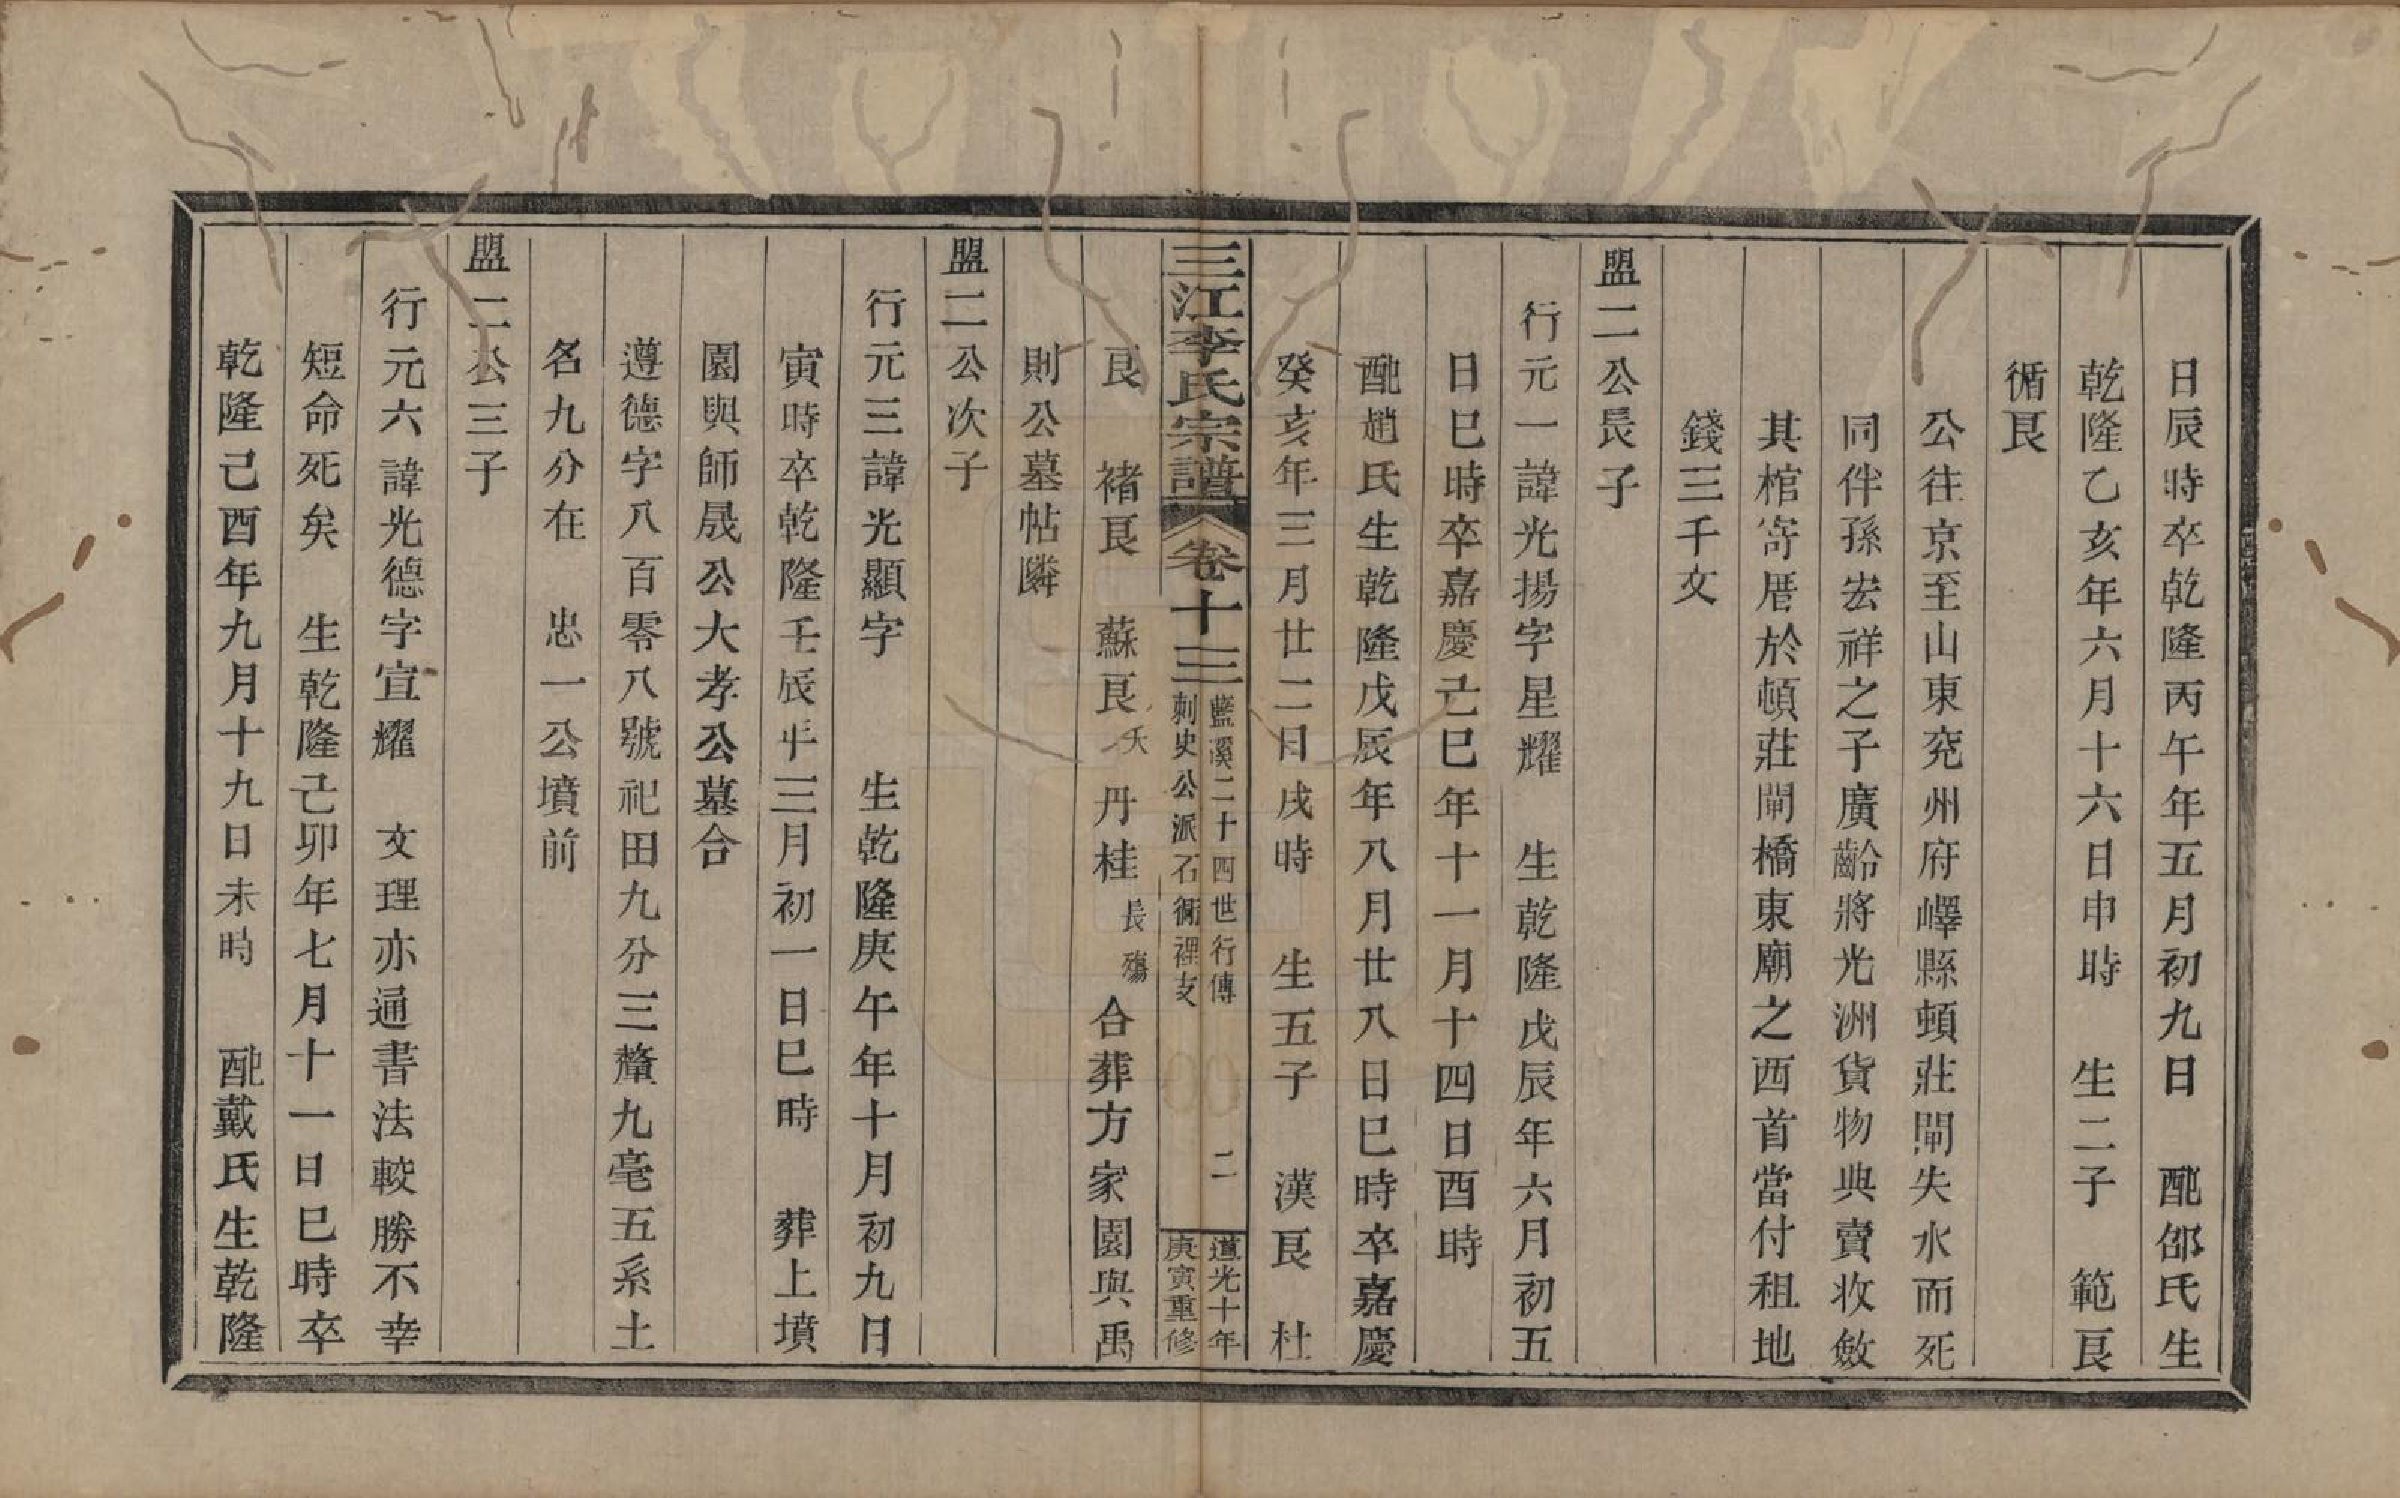 日辰時卒乾隆丙午年五月初九日　配邵氏生
乾隆乙亥年六月十六日申時　生二子　範艮
循艮
公往京至山東兖州府嶧縣頓莊閘失水而死
同伴孫宏祥之子廣齡將光洲貨物典賣收斂
其棺寄厝於頓莊閘橋東廟之西首當付租地
錢三千文
盟二公長子
行元一諱光揚字星耀　生乾隆戊辰年六月初五
日巳時卒嘉慶己巳年十一月十四日酉時
配趙氏生乾隆戊辰年八月廿八日巳時卒嘉慶
癸亥年三月廿二日戌時　生五子　漢艮　杜
三江李氏宗譜　卷十三　藍溪二十四世行傳　刺史公派石衕裡支　二　道光十年庚寅重修
艮　褚艮　蘇艮夭　丹桂長殤　合葬方家園與禹
則公墓帖隣
盟二公次子
行元三諱光顯字　　生乾隆庚午年十月初九日
寅時卒乾隆壬辰年三月初一日巳時　葬上墳
園與師晟公大孝公墓合
遵德字八百零八號祀田九分三釐九毫五系土
名九分在　忠一公墳前
盟二公三子
行元六諱光德字宣耀　文理亦通書法較勝不幸
短命死矣　生乾隆己卯年七月十一日巳時卒
乾隆己酉年九月十九日未時　配戴氏生乾隆